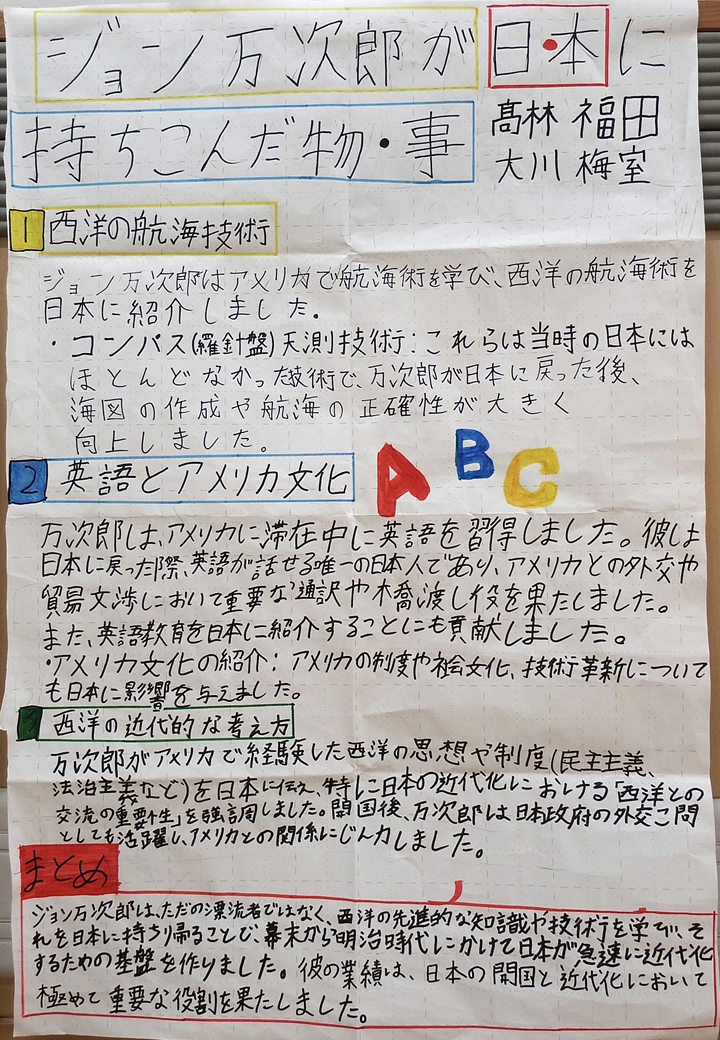 ジョン万次郎が日・本に
持ちこんだ物・事
髙林 福田
大川 梅室
1 西洋の航海技術
ジョン万次郎はアメリカで航海術を学び、西洋の航海術を
日本に紹介しました。
・コンパス(羅針盤)天測技術:これらは当時の日本には
ほとんどなかった技術で、万次郎が日本に戻った後、
海図の作成や航海の正確性が大きく
向上しました。
2 英語とアメリカ文化
A B C
万次郎は、アメリカに滞在中に英語を習得しました。彼は
日本に戻った際、英語が話せる唯一の日本人であり、アメリカとの外交や
貿易交渉において重要な通訳や橋渡し役を果たしました。
また、英語教育を日本に紹介することにも貢献しました。
・アメリカ文化の紹介:アメリカの制度や社会文化、技術革新について
も日本に影響を与えました。
3 西洋の近代的な考え方
万次郎がアメリカで経験した西洋の思想や制度(民主主義、
法治主義など)を日本に伝え、特に日本の近代化における「西洋との
交流の重要性」を強調しました。開国後、万次郎は日本政府の外交こ問
としても活躍し、アメリカとの関係にじん力しました。
まとめ
ジョン万次郎は、ただの漂流者ではなく、西洋の先進的な知識や技術を学び、そ
れを日本に持ち帰ることで、幕末から明治時代にかけて日本が急速に近代化
するための基盤を作りました。彼の業績は、日本の開国と近代化において
極めて重要な役割を果たしました。